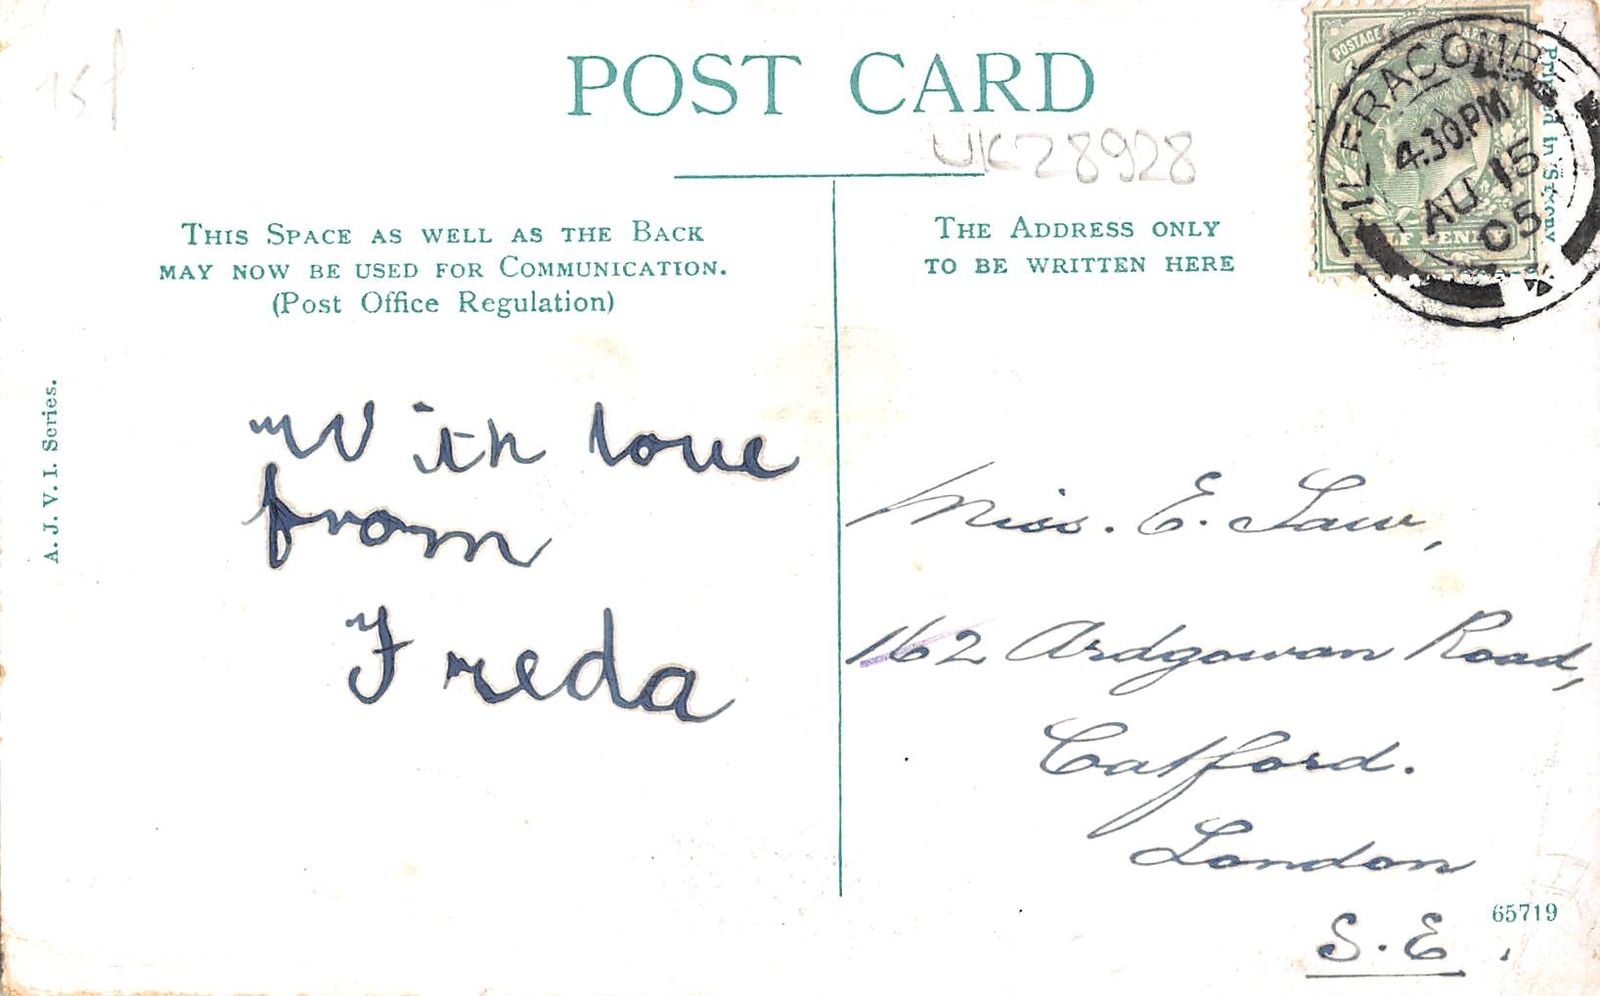 15f
POST CARD
UK28928
THIS SPACE AS WELL AS THE BACK
MAY NOW BE USED FOR COMMUNICATION.
(Post Office Regulation)
THE ADDRESS ONLY
TO BE WRITTEN HERE
POSTAGE
HALF PENNY
ILFRACOMBE
4.30PM
AU 15
05
Printed in Saxony
A. J. V. I. Series.
With love
from
Freda
Miss. E. Law,
162 Ardgowan Road,
Catford.
London
S. E.
65719